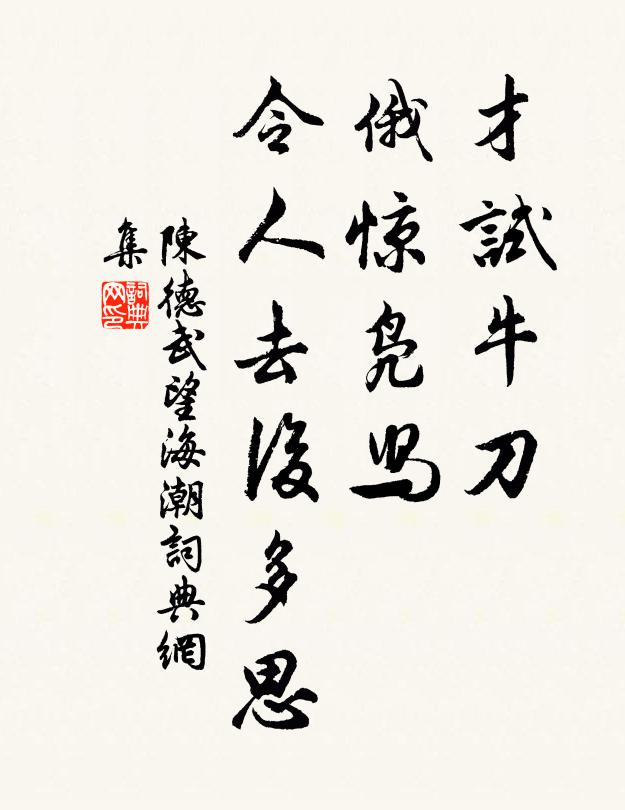 才試牛刀
俄惊凫舄
令人去後多思
陳德武望海潮詞典網
集
詞典
网印